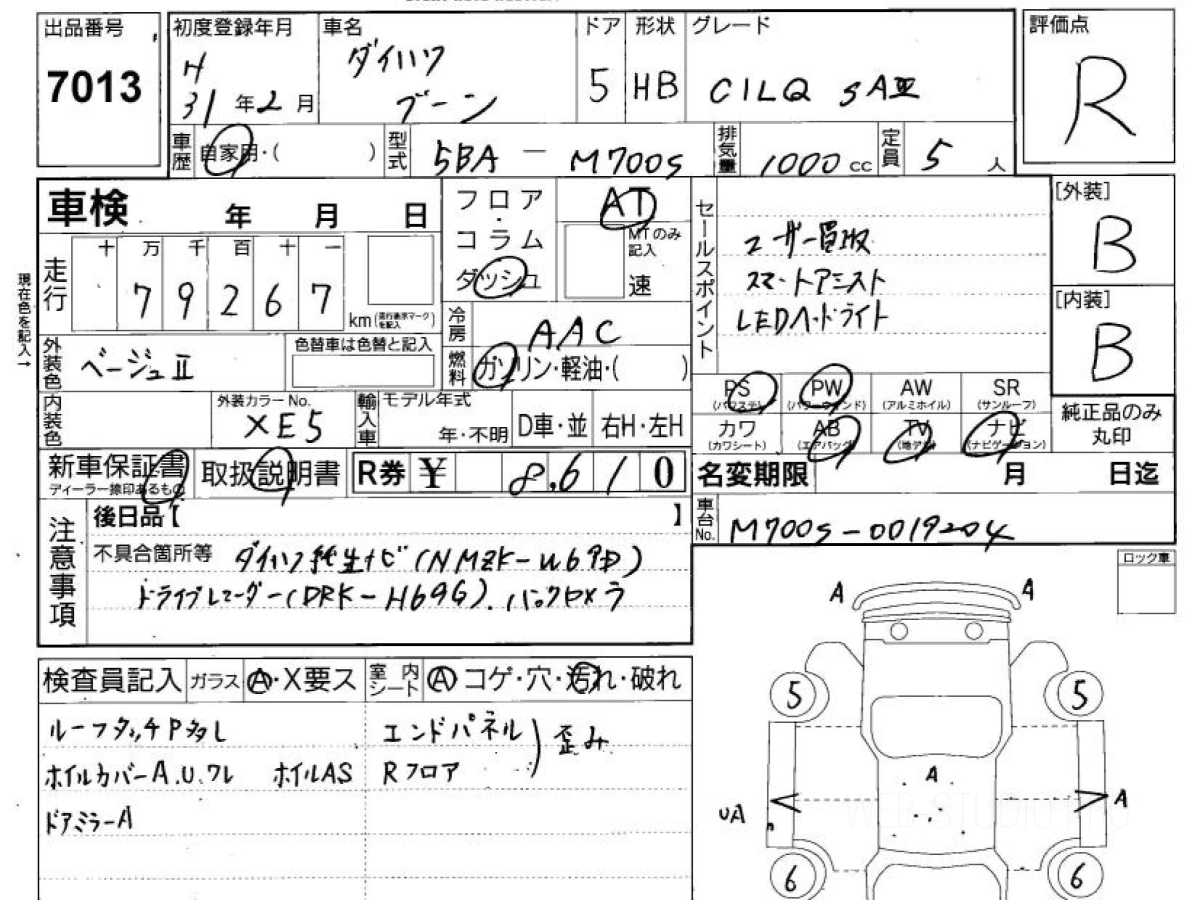 出品番号
7013
初度登録年月
H
31年2月
車名
ダイハツ
ブーン
ドア
5
形状
HB
グレード
CILQ SAⅢ
評価点
R
車歴
自家用・( )
型式
5BA - M700S
排気量
1000cc
定員
5人
車検 年 月 日
フロア・コラム
ダッシュ
AT
MTのみ記入
速
セールスポイント
ユーザー買取
スマートアシスト
LEDヘッドライト
[外装]
B
[内装]
B
現在色を記入→
走行
十 万 千 百 十 一
7 9 2 6 7
km(走行表示マークを記入)
冷房
AAC
外装色
ベージュⅡ
色替車は色替と記入
燃料
ガソリン・軽油・( )
PS
(パワステ)
PW
(パワーウィンド)
AW
(アルミホイル)
SR
(サンルーフ)
カワ
(カワシート)
AB
(エアバッグ)
TV
(地デジ)
ナビ
(ナビゲーション)
純正品のみ
丸印
内装色
外装カラーNo.
XE5
輸入車
モデル年式
年・不明
D車・並
右H・左H
新車保証書
ディーラー捺印あるもの
取扱説明書
R券 ¥ 8,610
名変期限 月 日迄
注意事項
後日品【 】
車台No.
M700S-0019204
不具合箇所等 ダイハツ純生ナビ(NMZK-W69D)
ドライブレコーダー(DRK-H69G). バックカメラ
ロック車
検査員記入
ガラス
A・X要ス
室内シート
A コゲ・穴・汚れ・破れ
ルーフタッチP多し
エンドパネル
歪み
ホイルカバーA.U.ワレ ホイルAS
Rフロア
ドアミラーA
A A
5 5
A
UA A
6 6
WEB STUDIO PRO